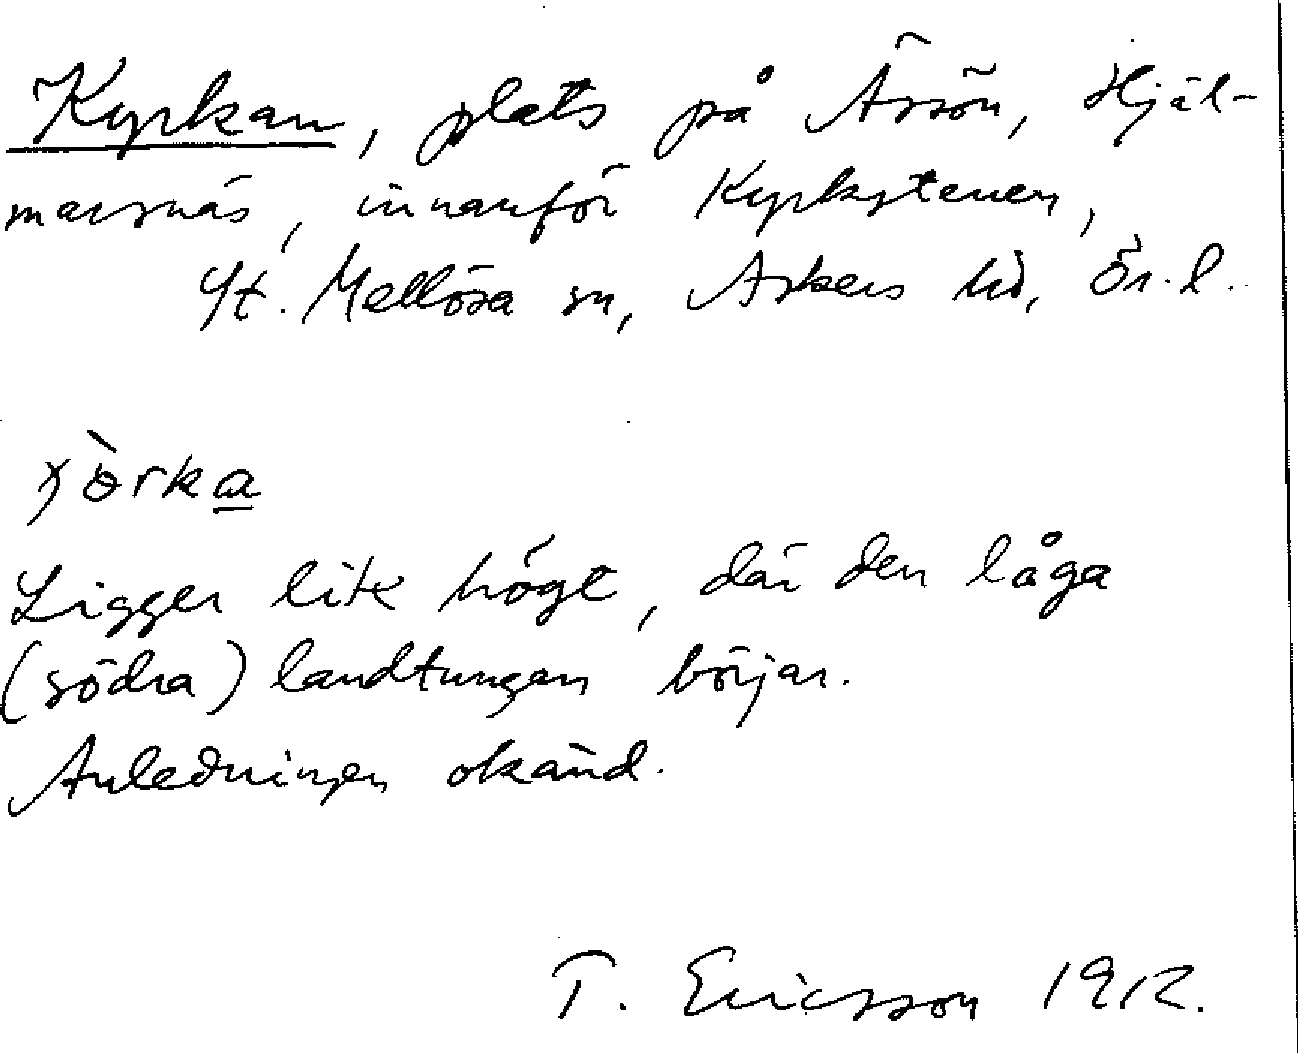 Kyrkan, plats på Ässön, Hjäl-
marsnäs, innanför Kyrkstenen,
St. Mellösa sn, Askers hd, Ör. l.
χòrka
Ligger lite högt, där den låga
(södra) landtungan börjar.
Anledningen okänd.
T. Ericsson 1912.